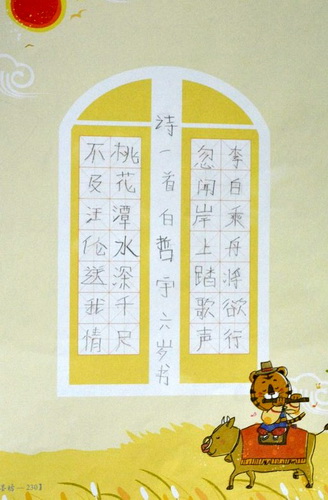 李白乘舟将欲行
忽闻岸上踏歌声
诗一首白哲宇六岁书
桃花潭水深千尺
不及汪伦送我情
—230】